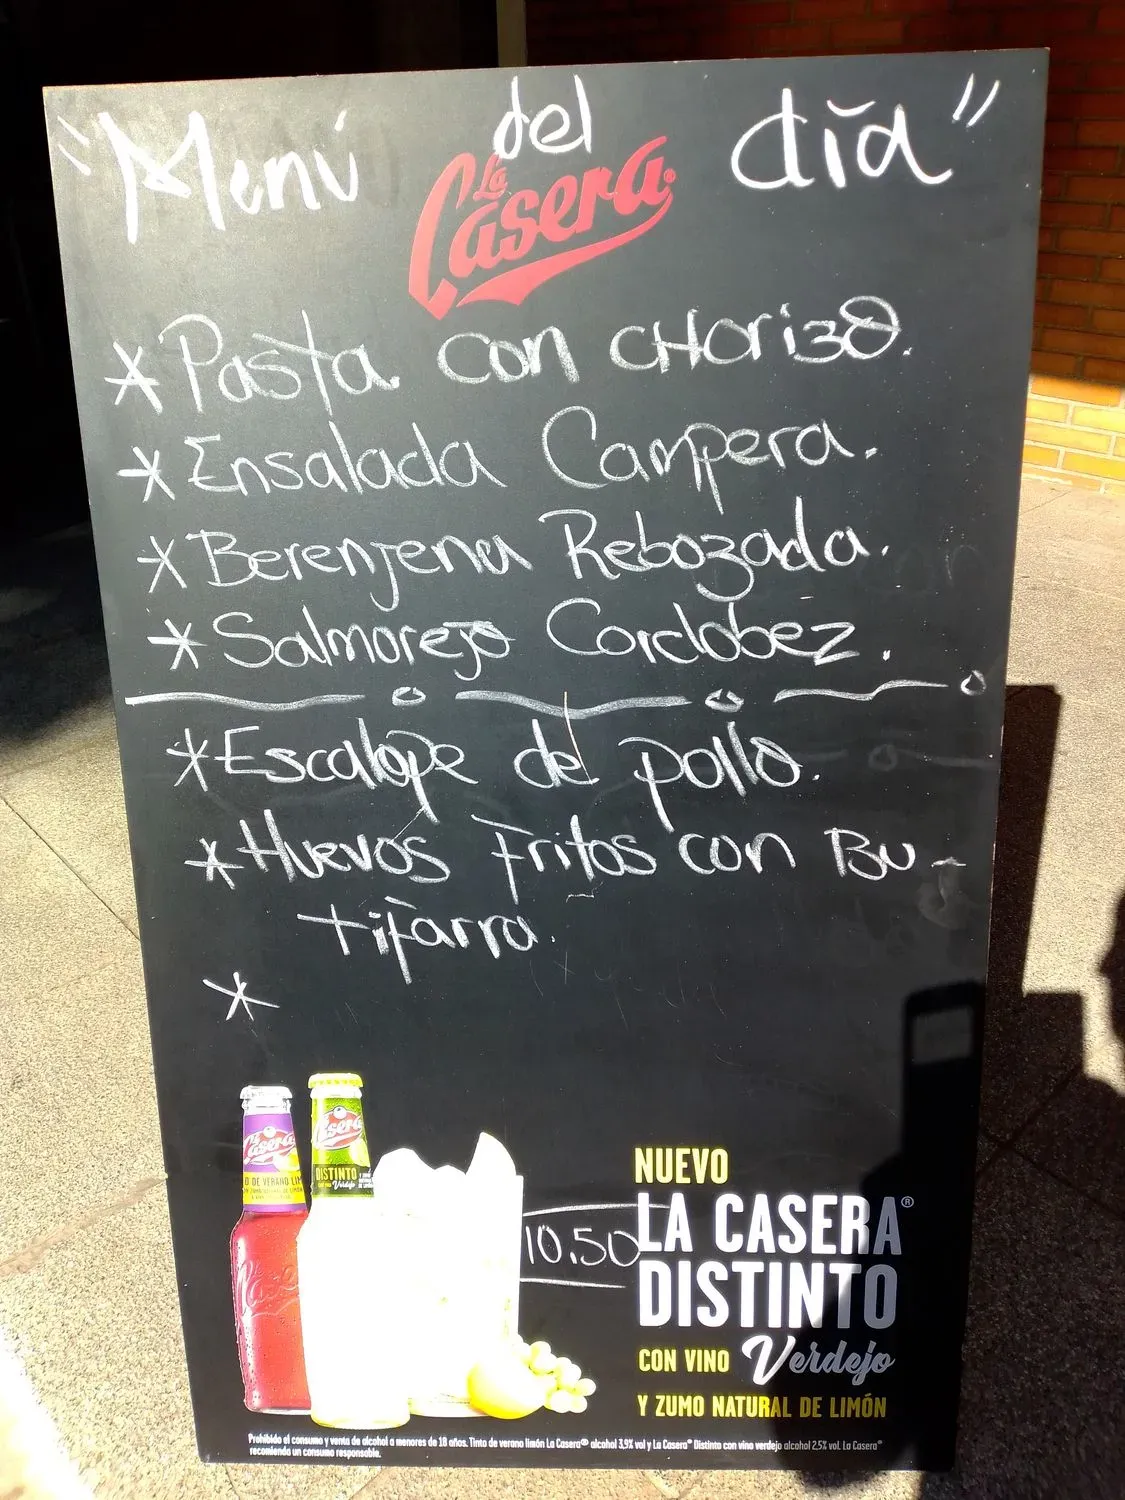 "Menú del día"
La Casera
* Pasta con CHorizo.
* Ensalada Campera.
* Berenjena Rebozada.
* Salmorejo Cordobez.
* Escalope de pollo.
* Huevos Fritos con Bu-
tifarra.
*
La Casera
O DE VERANO LIM
La Casera
DISTINTO
Verdejo
10.50
NUEVO
LA CASERA®
DISTINTO
CON VINO Verdejo
Y ZUMO NATURAL DE LIMÓN
Prohibido el consumo y venta de alcohol a menores de 18 años. Tinto de verano limón La Casera® alcohol 3,9% vol y La Casera® Distinto con vino verdejo alcohol 2,5% vol. La Casera®
recomienda un consumo responsable.